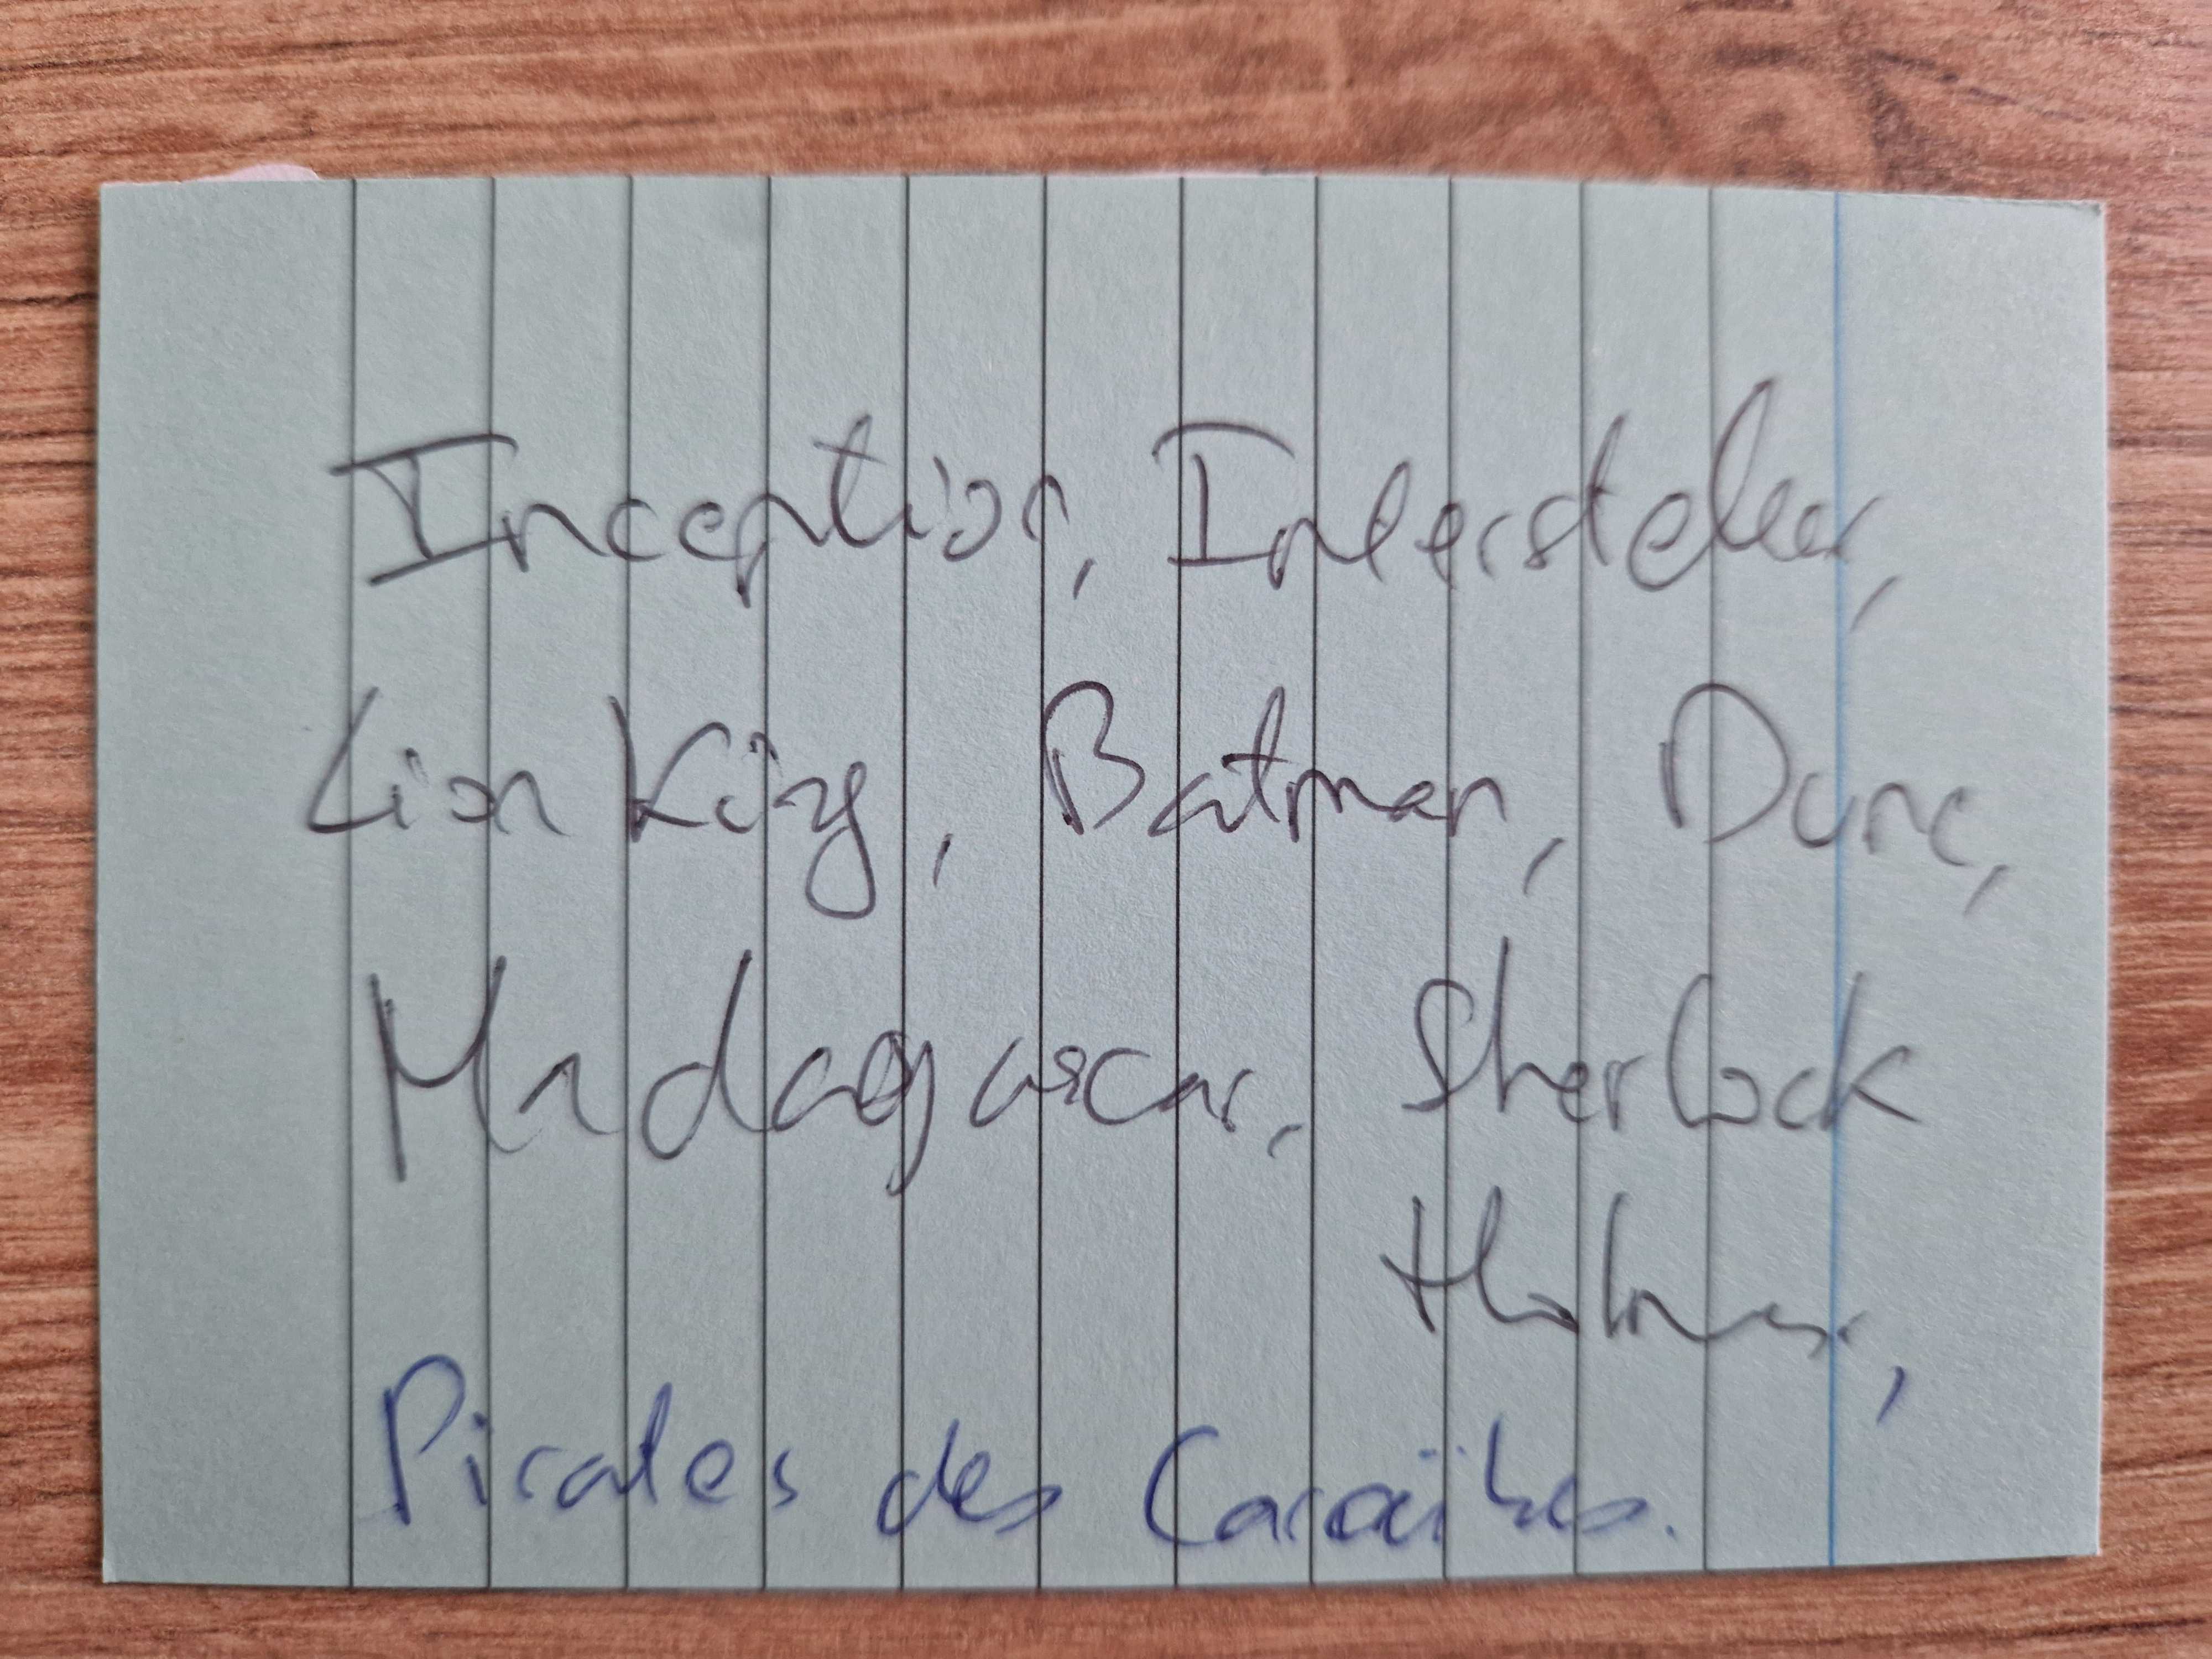 Inception, Interstellar,
Lion King, Batman, Dune,
Madagascar, Sherlock
Holmes,
Pirates des Caraïbes.